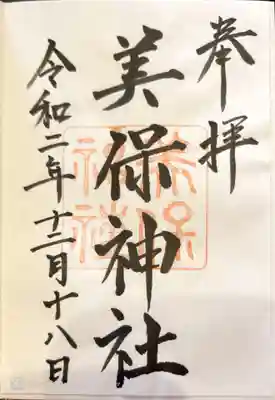 奉拝
美保神社
令和二年十二月十八日